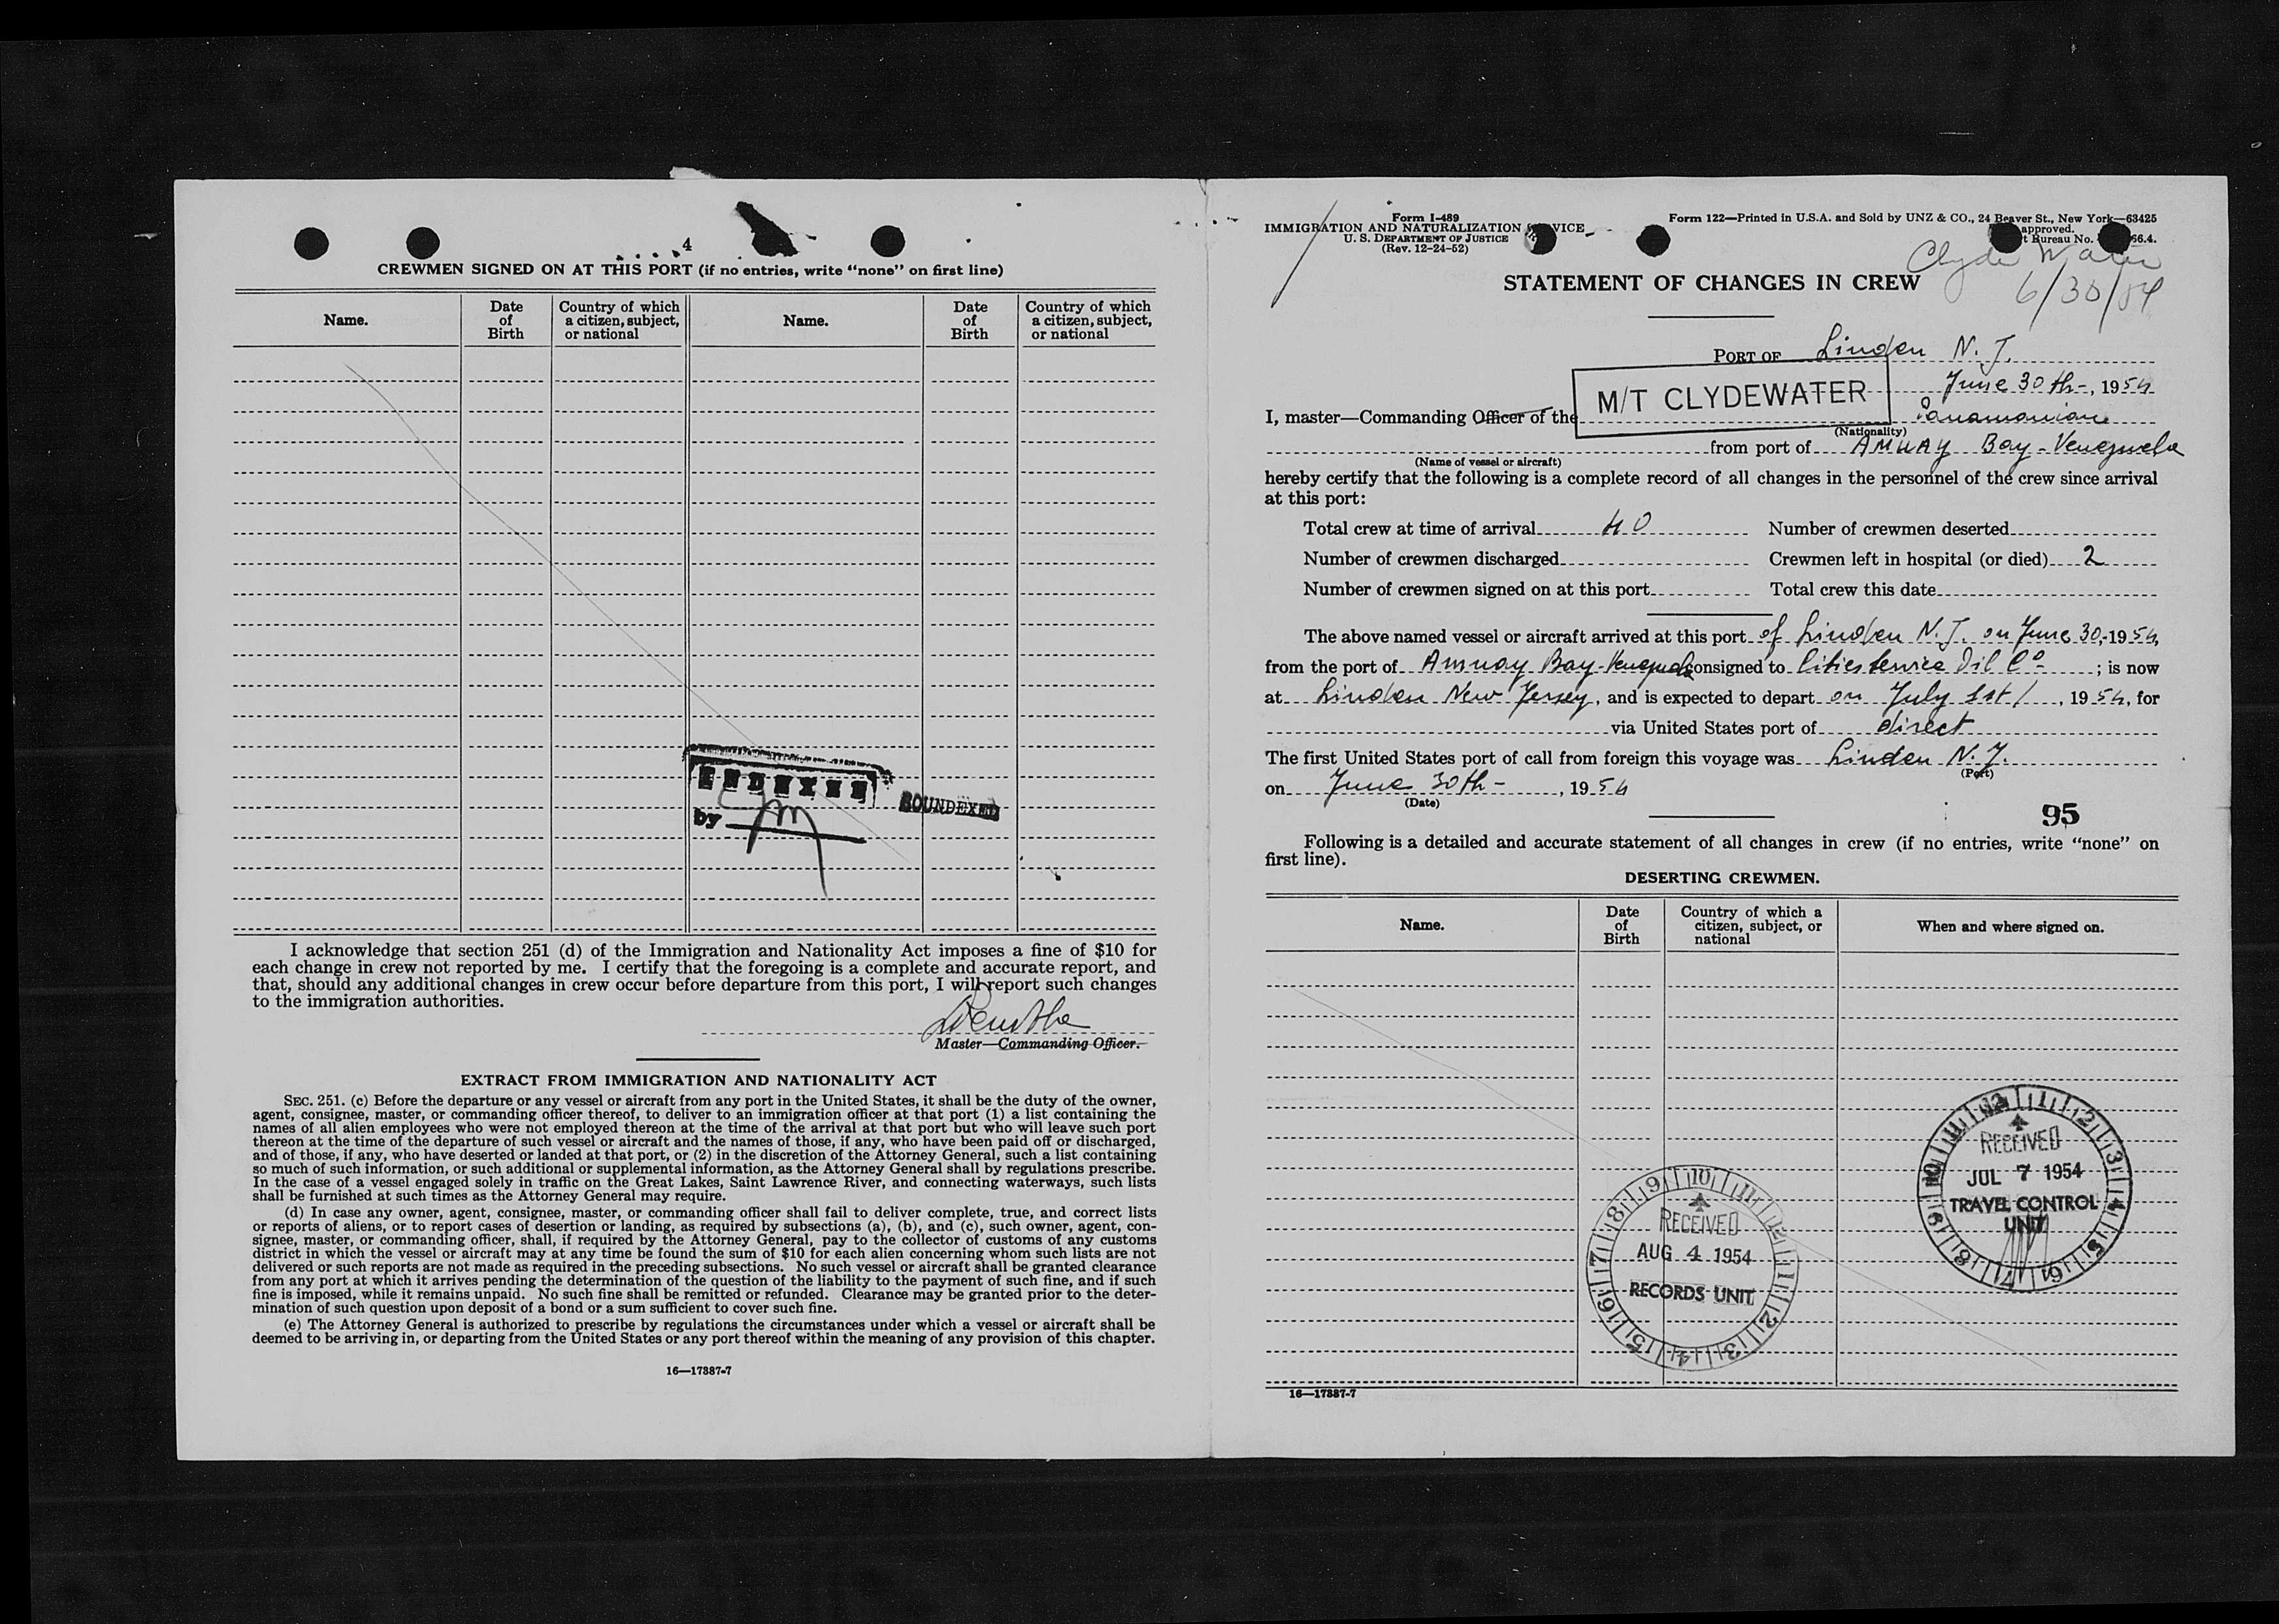 4
CREWMEN SIGNED ON AT THIS PORT (if no entries, write “none” on first line)
Name.
Date of Birth
Country of which a citizen, subject, or national
Name.
Date of Birth
Country of which a citizen, subject, or national
INDEXED
by
SOUNDEXED
I acknowledge that section 251 (d) of the Immigration and Nationality Act imposes a fine of $10 for
each change in crew not reported by me. I certify that the foregoing is a complete and accurate report, and
that, should any additional changes in crew occur before departure from this port, I will report such changes
to the immigration authorities.
Master—Commanding Officer.
EXTRACT FROM IMMIGRATION AND NATIONALITY ACT
SEC. 251. (c) Before the departure or any vessel or aircraft from any port in the United States, it shall be the duty of the owner,
agent, consignee, master, or commanding officer thereof, to deliver to an immigration officer at that port (1) a list containing the
names of all alien employees who were not employed thereon at the time of the arrival at that port but who will leave such port
thereon at the time of the departure of such vessel or aircraft and the names of those, if any, who have been paid off or discharged,
and of those, if any, who have deserted or landed at that port, or (2) in the discretion of the Attorney General, such a list containing
so much of such information, or such additional or supplemental information, as the Attorney General shall by regulations prescribe.
In the case of a vessel engaged solely in traffic on the Great Lakes, Saint Lawrence River, and connecting waterways, such lists
shall be furnished at such times as the Attorney General may require.
(d) In case any owner, agent, consignee, master, or commanding officer shall fail to deliver complete, true, and correct lists
or reports of aliens, or to report cases of desertion or landing, as required by subsections (a), (b), and (c), such owner, agent, con-
signee, master, or commanding officer, shall, if required by the Attorney General, pay to the collector of customs of any customs
district in which the vessel or aircraft may at any time be found the sum of $10 for each alien concerning whom such lists are not
delivered or such reports are not made as required in the preceding subsections. No such vessel or aircraft shall be granted clearance
from any port at which it arrives pending the determination of the question of the liability to the payment of such fine, and if such
fine is imposed, while it remains unpaid. No such fine shall be remitted or refunded. Clearance may be granted prior to the deter-
mination of such question upon deposit of a bond or a sum sufficient to cover such fine.
(e) The Attorney General is authorized to prescribe by regulations the circumstances under which a vessel or aircraft shall be
deemed to be arriving in, or departing from the United States or any port thereof within the meaning of any provision of this chapter.
16—17887-7
Form I-489
IMMIGRATION AND NATURALIZATION SERVICE
U. S. DEPARTMENT OF JUSTICE
(Rev. 12-24-52)
Form 122—Printed in U.S.A. and Sold by UNZ & CO., 24 Beaver St., New York—63425
approved.
Bureau No. 66.4.
Clyde Water
6/30/54
STATEMENT OF CHANGES IN CREW
PORT OF Linden N. J.
June 30th-, 1954
M/T CLYDEWATER
I, master—Commanding Officer of the Panamanian
(Nationality)
from port of AMUAY Bay-Venezuela
(Name of vessel or aircraft)
hereby certify that the following is a complete record of all changes in the personnel of the crew since arrival
at this port:
Total crew at time of arrival 40 Number of crewmen deserted
Number of crewmen discharged Crewmen left in hospital (or died) 2
Number of crewmen signed on at this port Total crew this date
The above named vessel or aircraft arrived at this port of Linden N. J. on June 30,-1954,
from the port of Amuay Bay-Venezuela consigned to Cities Service Oil Co ; is now
at Linden New Jersey, and is expected to depart on July 1st/, 1954, for
via United States port of direct
The first United States port of call from foreign this voyage was Linden N. J.
(Port)
on June 30th-, 1954
(Date)
95
Following is a detailed and accurate statement of all changes in crew (if no entries, write “none” on
first line).
DESERTING CREWMEN.
Name.
Date of Birth
Country of which a citizen, subject, or national
When and where signed on.
RECEIVED
JUL 7 1954
TRAVEL CONTROL
UNIT
RECEIVED
AUG 4 1954
RECORDS UNIT
16—17887-7